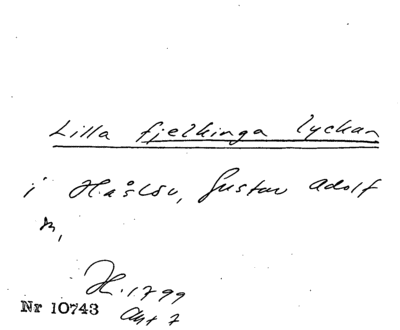 Lilla fjelkinga lyckan
i Håslöv, Gustav Adolf
n,
H. 1799
Nr 10743 Akt 7